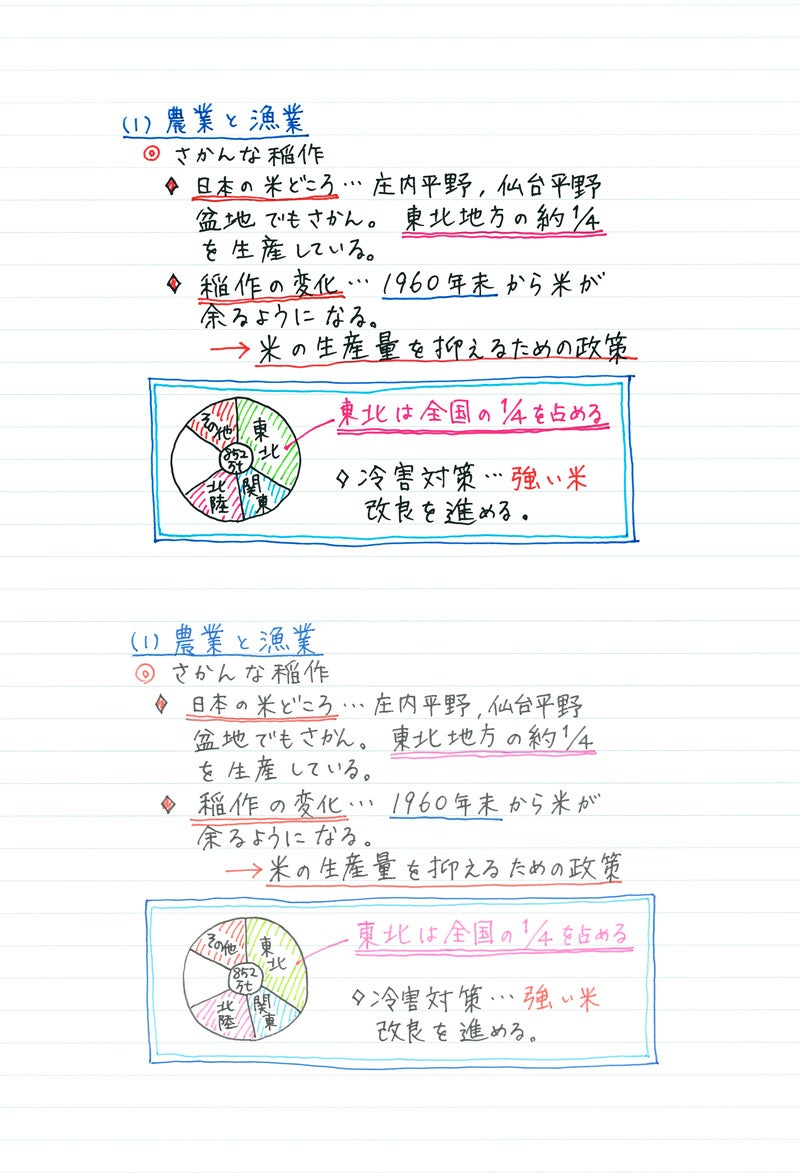 (1) 農業と漁業
◎ さかんな稲作
◆ 日本の米どころ… 庄内平野, 仙台平野
盆地でもさかん。 東北地方の約1/4
を生産している。
◆ 稲作の変化… 1960年末から米が
余るようになる。
→ 米の生産量を抑えるための政策
東北は全国の1/4を占める
その他
東北
852
万t
北陸
関東
◇冷害対策…強い米
改良を進める。
(1) 農業と漁業
◎ さかんな稲作
◆ 日本の米どころ… 庄内平野, 仙台平野
盆地でもさかん。 東北地方の約1/4
を生産している。
◆ 稲作の変化… 1960年末から米が
余るようになる。
→ 米の生産量を抑えるための政策
東北は全国の1/4を占める
その他
東北
852
万t
北陸
関東
◇冷害対策…強い米
改良を進める。